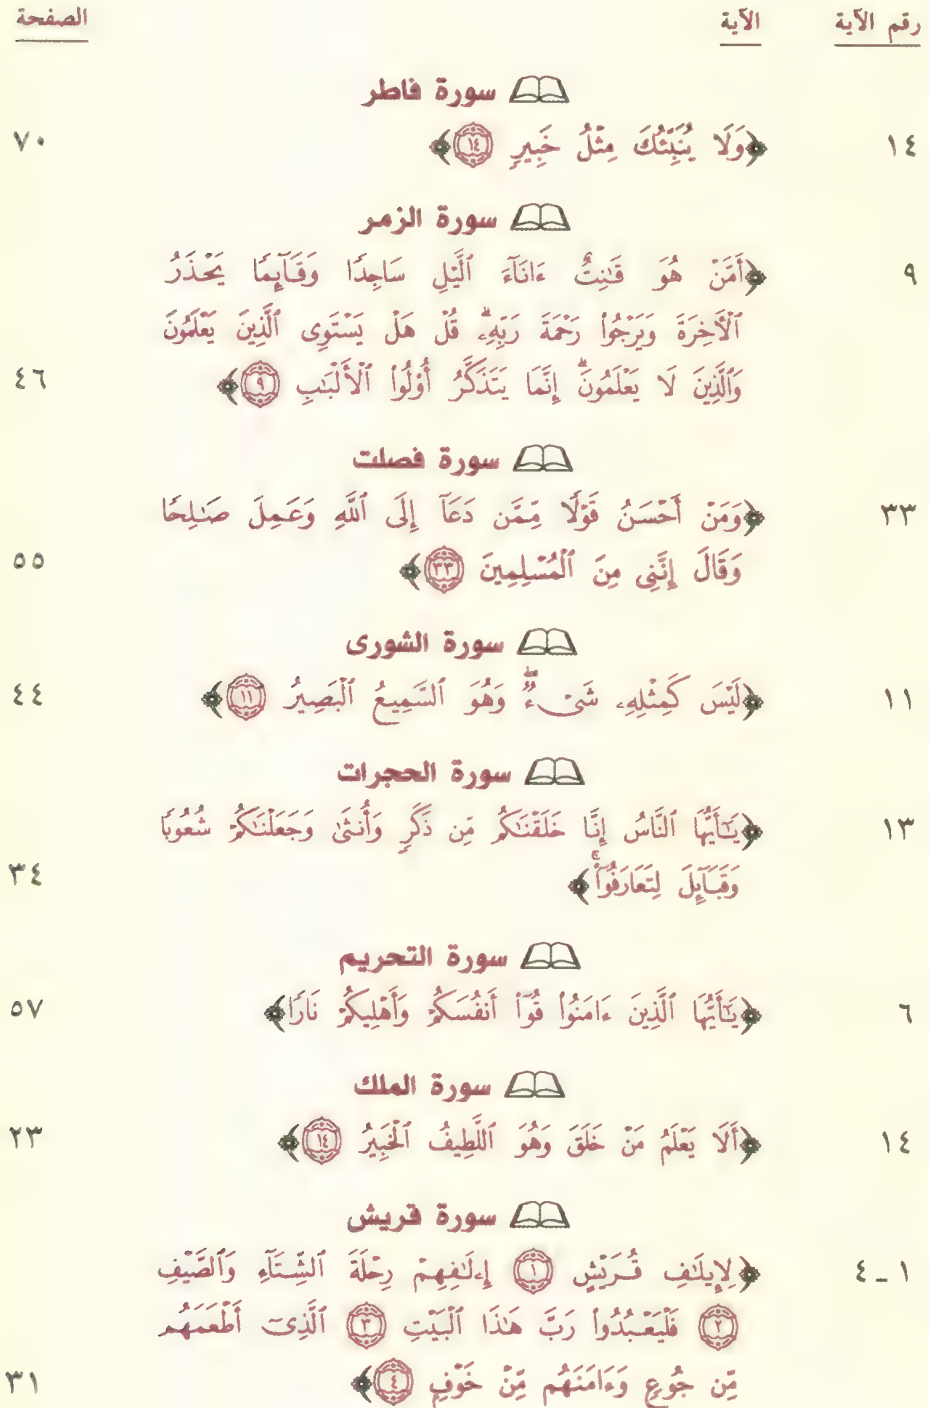 رقم الآية الآية الصفحة
سورة فاطر
١٤ ﴿وَلَا يُنَبِّئُكَ مِثْلُ خَبِيرٍ ١٤﴾ ٧٠
سورة الزمر
٩ ﴿أَمَّنْ هُوَ قَٰنِتٌ ءَانَآءَ ٱلَّيْلِ سَاجِدًا وَقَآئِمًا يَحْذَرُ
ٱلْأَخِرَةَ وَيَرْجُوا۟ رَحْمَةَ رَبِّهِۦۗ قُلْ هَلْ يَسْتَوِى ٱلَّذِينَ يَعْلَمُونَ
وَٱلَّذِينَ لَا يَعْلَمُونَۗ إِنَّمَا يَتَذَكَّرُ أُو۟لُوا۟ ٱلْأَلْبَٰبِ ٩﴾ ٤٦
سورة فصلت
٣٣ ﴿وَمَنْ أَحْسَنُ قَوْلًا مِّمَّن دَعَآ إِلَى ٱللَّهِ وَعَمِلَ صَٰلِحًا
وَقَالَ إِنَّنِى مِنَ ٱلْمُسْلِمِينَ ٣٣﴾ ٥٥
سورة الشورى
١١ ﴿لَيْسَ كَمِثْلِهِۦ شَىْءٌۖ وَهُوَ ٱلسَّمِيعُ ٱلْبَصِيرُ ١١﴾ ٤٤
سورة الحجرات
١٣ ﴿يَٰٓأَيُّهَا ٱلنَّاسُ إِنَّا خَلَقْنَٰكُم مِّن ذَكَرٍ وَأُنثَىٰ وَجَعَلْنَٰكُمْ شُعُوبًا
وَقَبَآئِلَ لِتَعَارَفُوٓا۟ۚ﴾ ٣٤
سورة التحريم
٦ ﴿يَٰٓأَيُّهَا ٱلَّذِينَ ءَامَنُوا۟ قُوٓا۟ أَنفُسَكُمْ وَأَهْلِيكُمْ نَارًا﴾ ٥٧
سورة الملك
١٤ ﴿أَلَا يَعْلَمُ مَنْ خَلَقَ وَهُوَ ٱللَّطِيفُ ٱلْخَبِيرُ ١٤﴾ ٢٣
سورة قريش
١ - ٤ ﴿لِإِيلَٰفِ قُرَيْشٍ ١ إِۦلَٰفِهِمْ رِحْلَةَ ٱلشِّتَآءِ وَٱلصَّيْفِ
٢ فَلْيَعْبُدُوا۟ رَبَّ هَٰذَا ٱلْبَيْتِ ٣ ٱلَّذِىٓ أَطْعَمَهُم
مِّن جُوعٍ وَءَامَنَهُم مِّنْ خَوْفٍ ٤﴾ ٣١